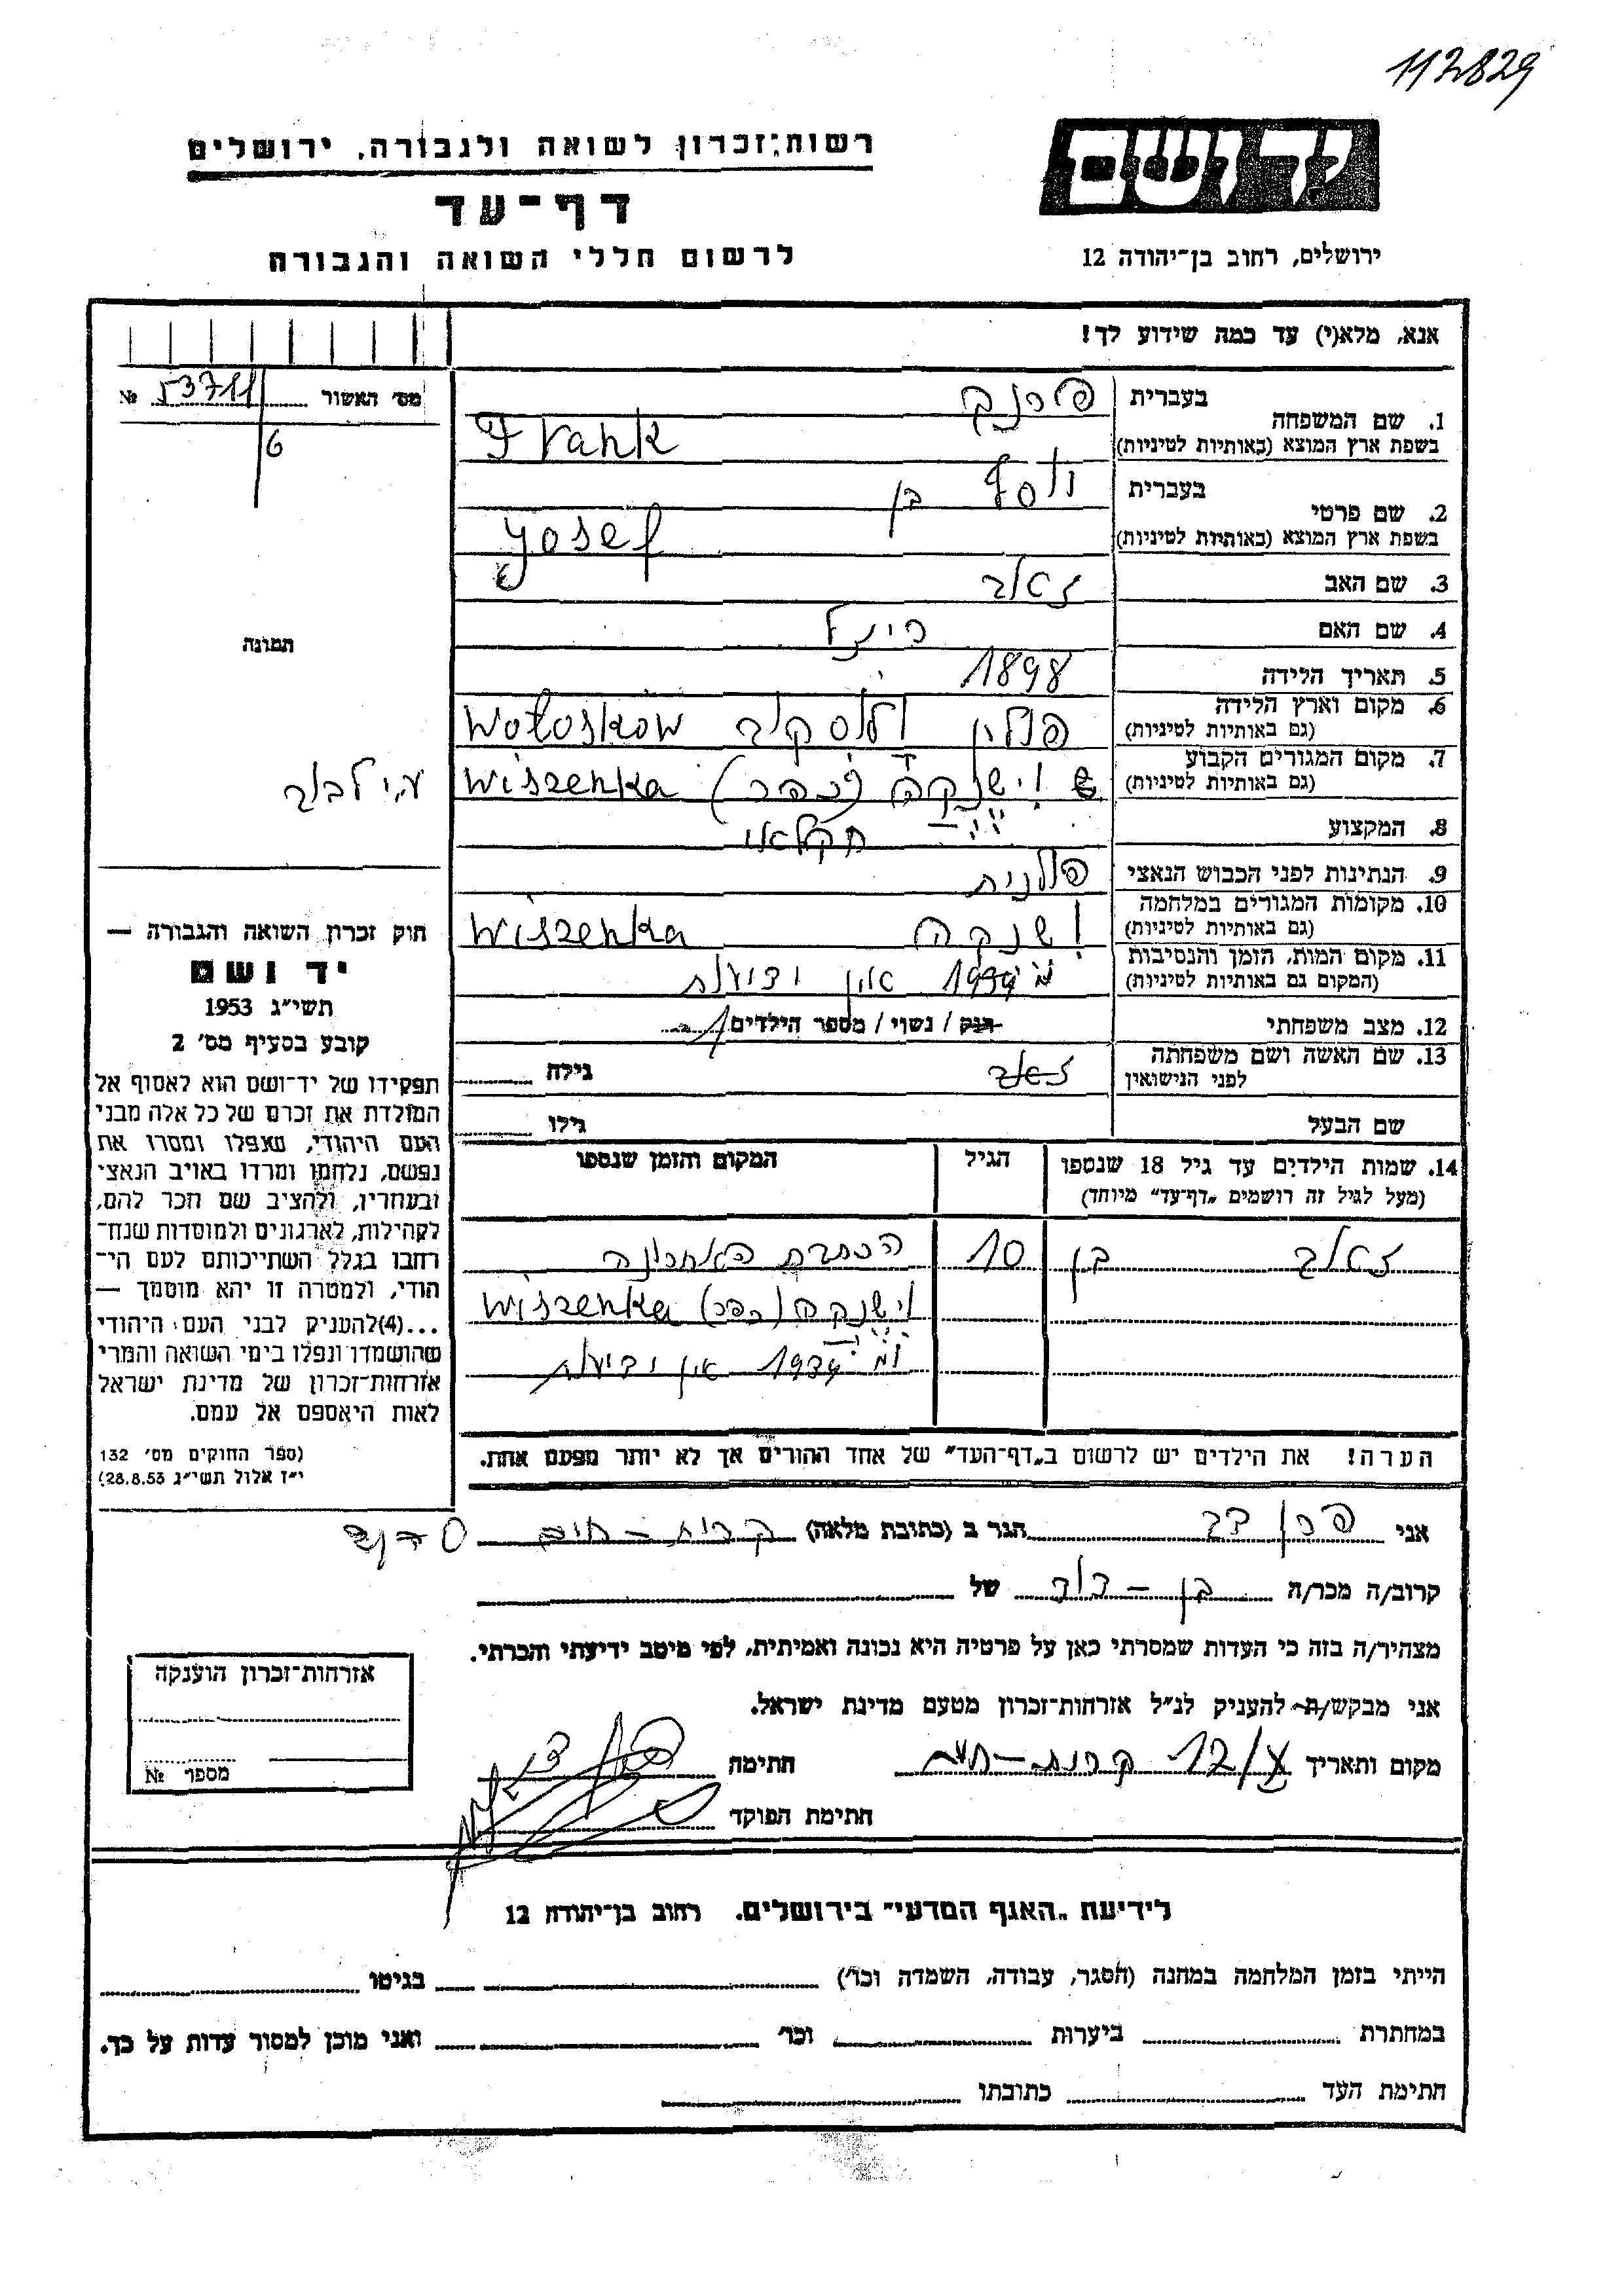 112829
יד ושם
רשות זכרון לשואה ולגבורה, ירושלים
דף-עד
לרשום חללי השואה והגבורה
ירושלים, רחוב בן-יהודה 12
אנא, מלא(י) עד כמה שידוע לך!
מס' האשור № 53711
6
1. שם המשפחה בעברית פרנק
בשפת ארץ המוצא (באותיות לטיניות) Frank
2. שם פרטי בעברית יוסף בן
בשפת ארץ המוצא (באותיות לטיניות) Yosef
3. שם האב זאב
4. שם האם
5. תאריך הלידה 1898
6. מקום וארץ הלידה (גם באותיות לטיניות) פולין Wołoskow
7. מקום המגורים הקבוע (גם באותיות לטיניות) וישנקה (כפר) Wiszenka
ע"י לבוב
8. המקצוע חקלאי
9. הנתינות לפני הכבוש הנאצי פולנית
10. מקומות המגורים במלחמה (גם באותיות לטיניות) וישנקה Wiszenka
11. מקום המות, הזמן והנסיבות (המקום גם באותיות לטיניות) מ 1939 אין ידיעות
12. מצב משפחתי רווק / נשוי / מספר הילדים 1
13. שם האשה ושם משפחתה לפני הנישואין זאב גילה
שם הבעל גילו
14. שמות הילדים עד גיל 18 שנספו הגיל המקום והזמן שנספו
(מעל לגיל זה רושמים "דף-עד" מיוחד)
זאב בן 10 הכתבת האחרונה
וישנקה (כפר) Wiszenka
ומ 1939 אין ידיעות
הערה! את הילדים יש לרשום ב"דף-העד" של אחד ההורים אך לא יותר מפעם אחת.
תמונה
חוק זכרון השואה והגבורה —
יד ושם
תשי"ג 1953
קובע בסעיף מס' 2
תפקידו של יד-ושם הוא לאסוף אל
המולדת את זכרם של כל אלה מבני
העם היהודי, שנפלו ומסרו את
נפשם, נלחמו ומרדו באויב הנאצי
ובעוזריו, ולהציב שם וזכר להם,
לקהילות, לארגונים ולמוסדות שנח-
רבו בגלל השתייכותם לעם הי-
הודי, ולמטרה זו יהא מוסמך —
...(4) להעניק לבני העם היהודי
שהושמדו ונפלו בימי השואה והמרי
אזרחות-זכרון של מדינת ישראל
לאות היאספם אל עמם.
(ספר החוקים מס' 132
י"ז אלול תשי"ג 28.8.53)
אני פרן דב הגר ב (כתובת מלאה) קרית-חיים
קרוב/ה מכר/ה בן-דוד של
מצהיר/ה בזה כי העדות שמסרתי כאן על פרטיה היא נכונה ואמיתית, לפי מיטב ידיעתי והכרתי.
אני מבקש/ת להעניק לנ"ל אזרחות-זכרון מטעם מדינת ישראל.
מקום ותאריך קרית-חיים חתימה
חתימת הפוקד
אזרחות-זכרון הוענקה
מספר №
לידיעת "האגף המדעי" בירושלים. רחוב בן-יהודה 12
הייתי בזמן המלחמה במחנה (הסגר, עבודה, השמדה וכו') בגיטו
במחתרת ביערות וכו' ואני מוכן למסור עדות על כך.
חתימת העד כתובתו